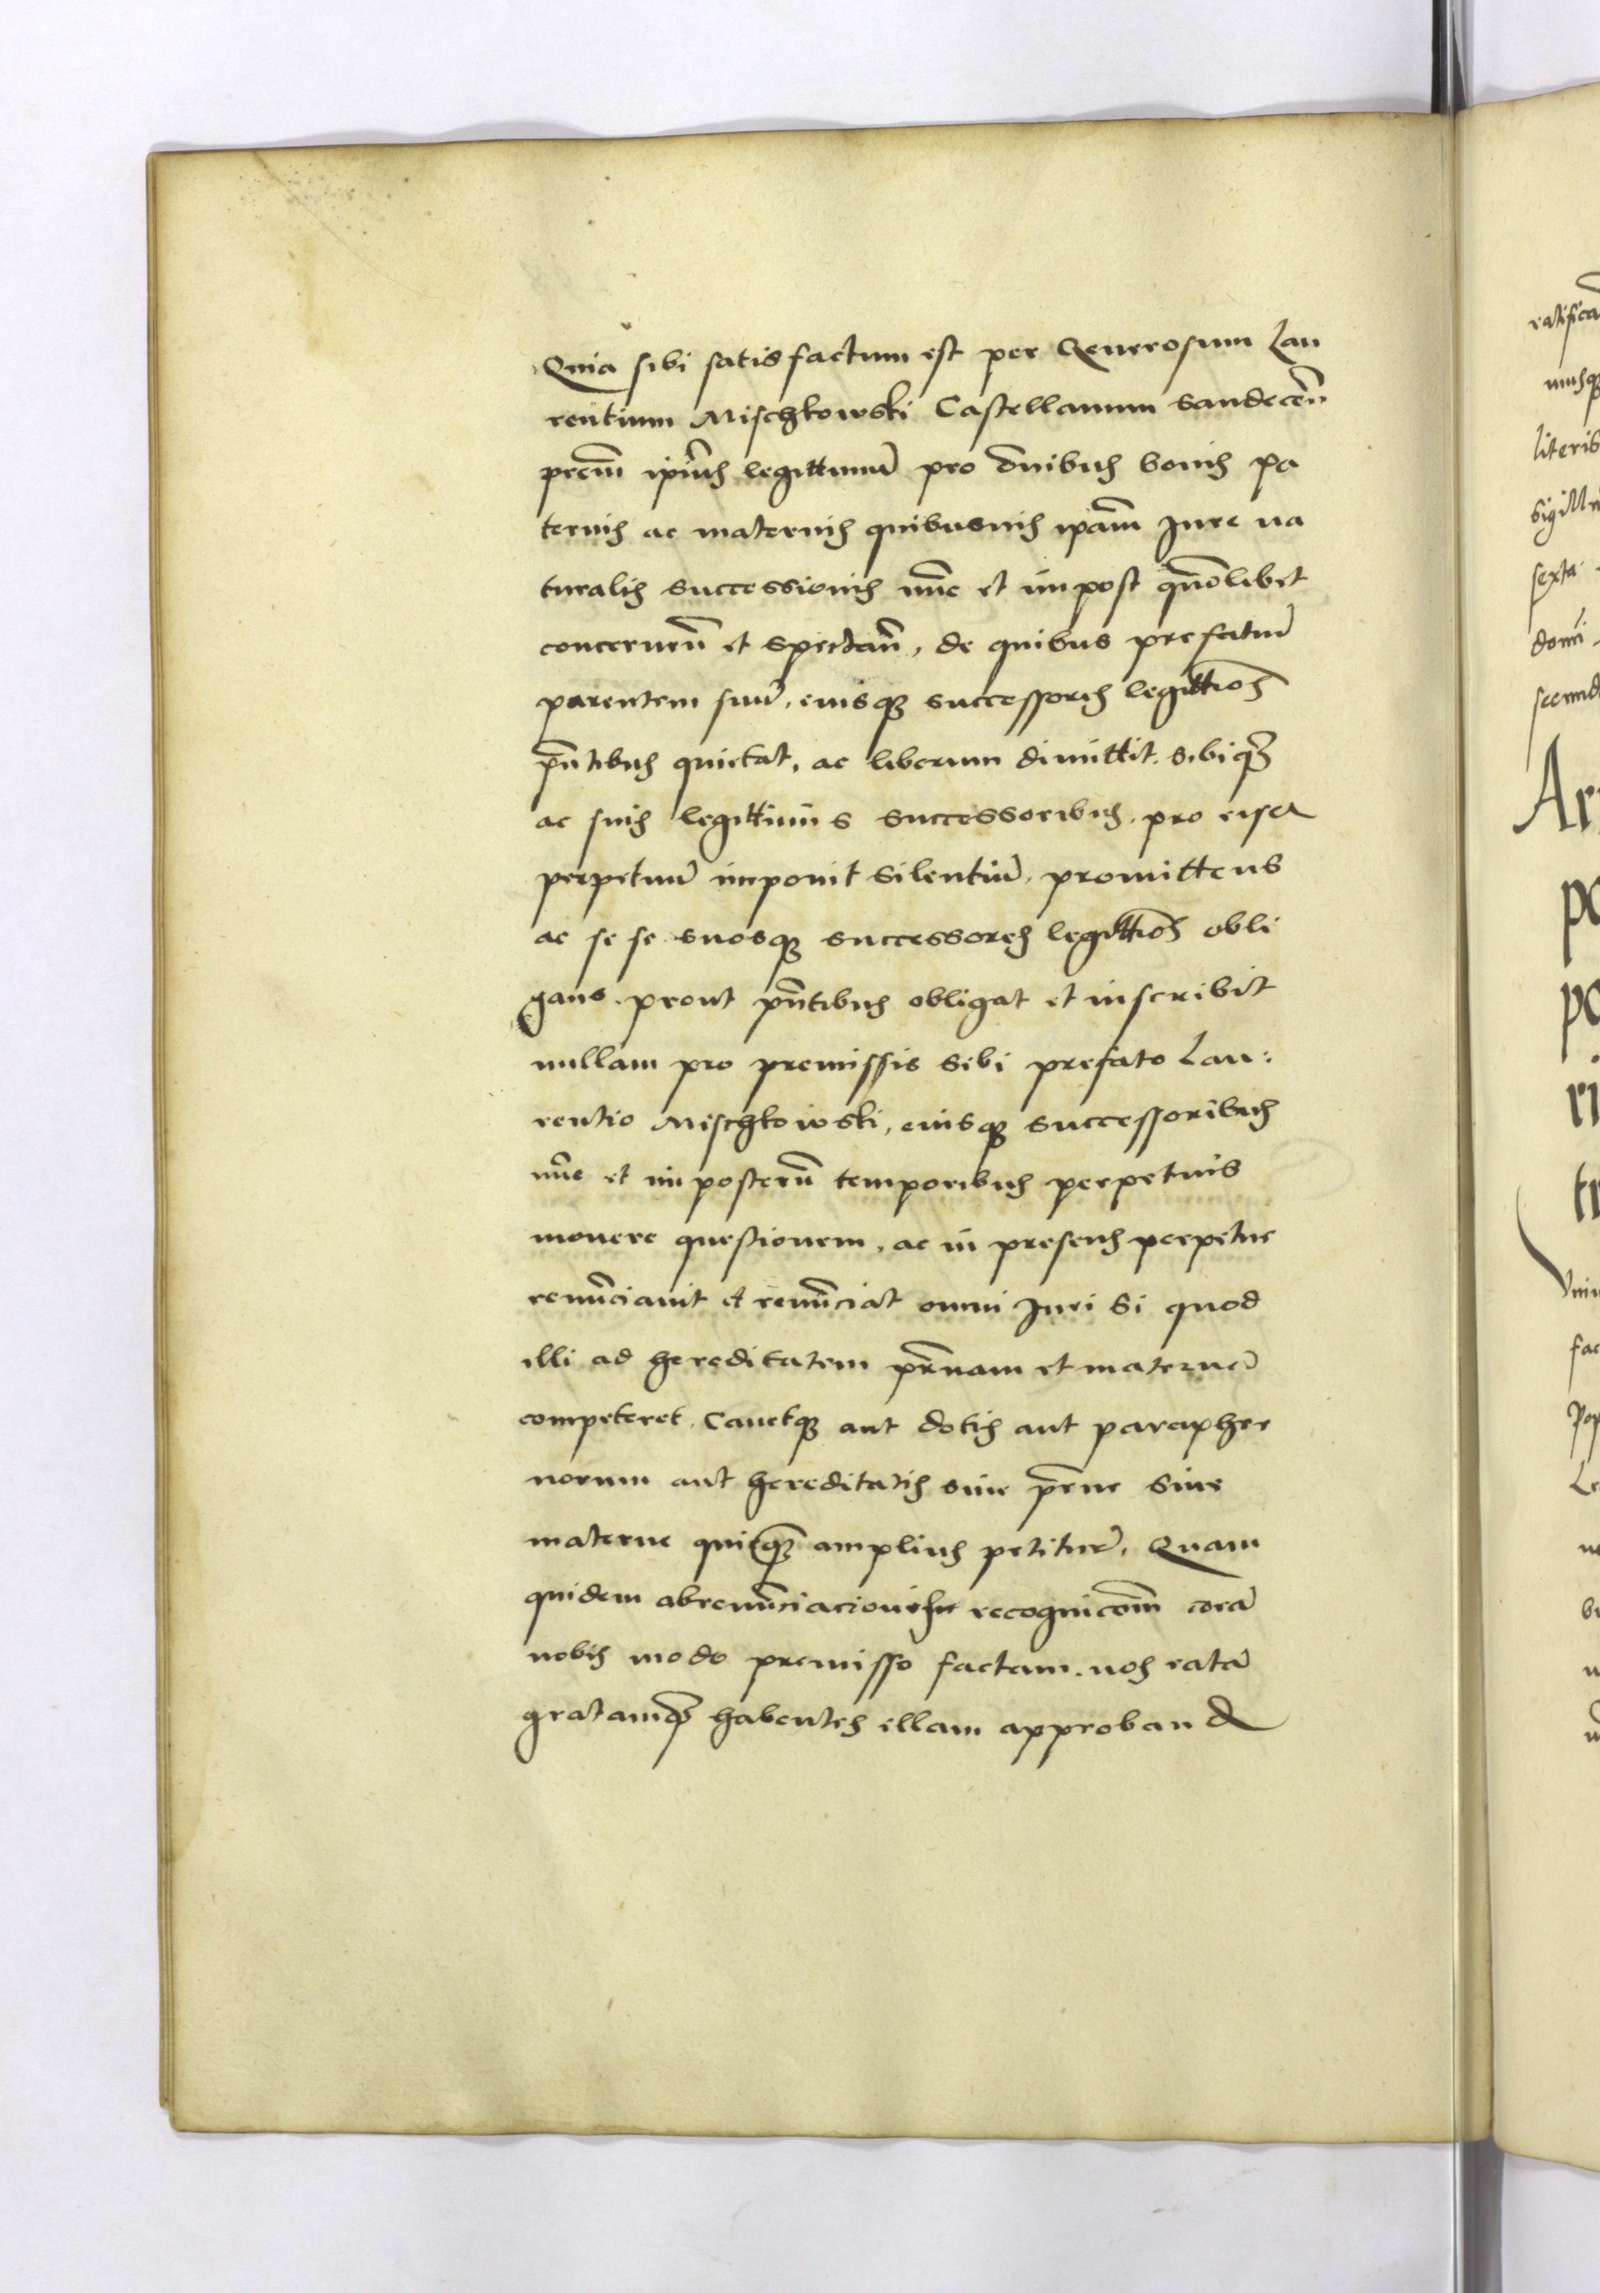 Quia sibi satisfactum est per Generosum Lau
rentium Mischkowski Castellanum Sandeceñ
preñ ipiũs legittimũ pro oĩnibus bonis pa
ternis ac maternis quibusuis ipam̃ Jure na
turalis successionis nũc et in post quõlibet
concerneñ et spectañ, de quibus prefatũ
parentem suũ, eiusqꝫ successores legittiõs
pñtibus quietat, ac liberum dimittit. Sibiqꝫ
ac suis legittimis successoribus pro eisd
perpetuũ imponit silentiũ, promittens
ac se se suosqꝫ successores legittiõs obli
gans. prout pñtibus obligat et inscribit
nullam pro premissis sibi prefato Lau:
rentio Mischkowski, eiusqꝫ successoribus
nũc et in posterũ temporibus perpetuis
mouere questionem, ac in presens perpetue
renũciauit et renũciat omni Juri si quod
illi ad hereditatem pr̃nam et maternã
competeret. Cauetqꝫ aut dotis aut parapher
norum aut hereditatis siue pr̃ne siue
materne quicqꝫ amplius petitur̃. Quam
quidem abrenũciacionis recognicoñm corã
nobis modo premisso factam. nos ratã
gratamqꝫ habentes illam approband
ratifica
literis
Sigill
sexta
domi
secund
Ar
po
po
ri
tr
fac
Pop
Le